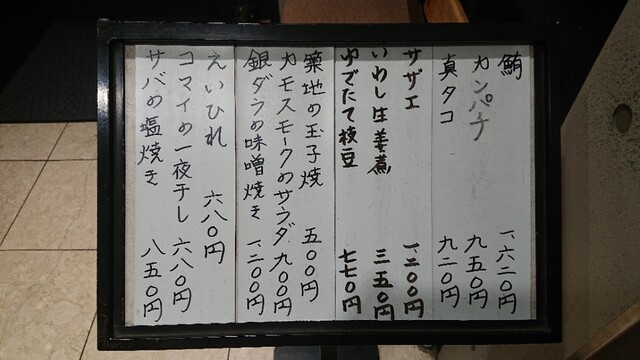 鮪 一、六二〇円
カンパチ 九五〇円
真タコ 九二〇円
サザエ 一、二〇〇円
いわし生姜煮 三五〇円
ゆでたて枝豆 七七〇円
築地の玉子焼 五〇〇円
カモスモークのサラダ 九〇〇円
銀ダラの味噌焼き 一、二〇〇円
えいひれ 六八〇円
コマイの一夜干し 六八〇円
サバの塩焼き 八五〇円